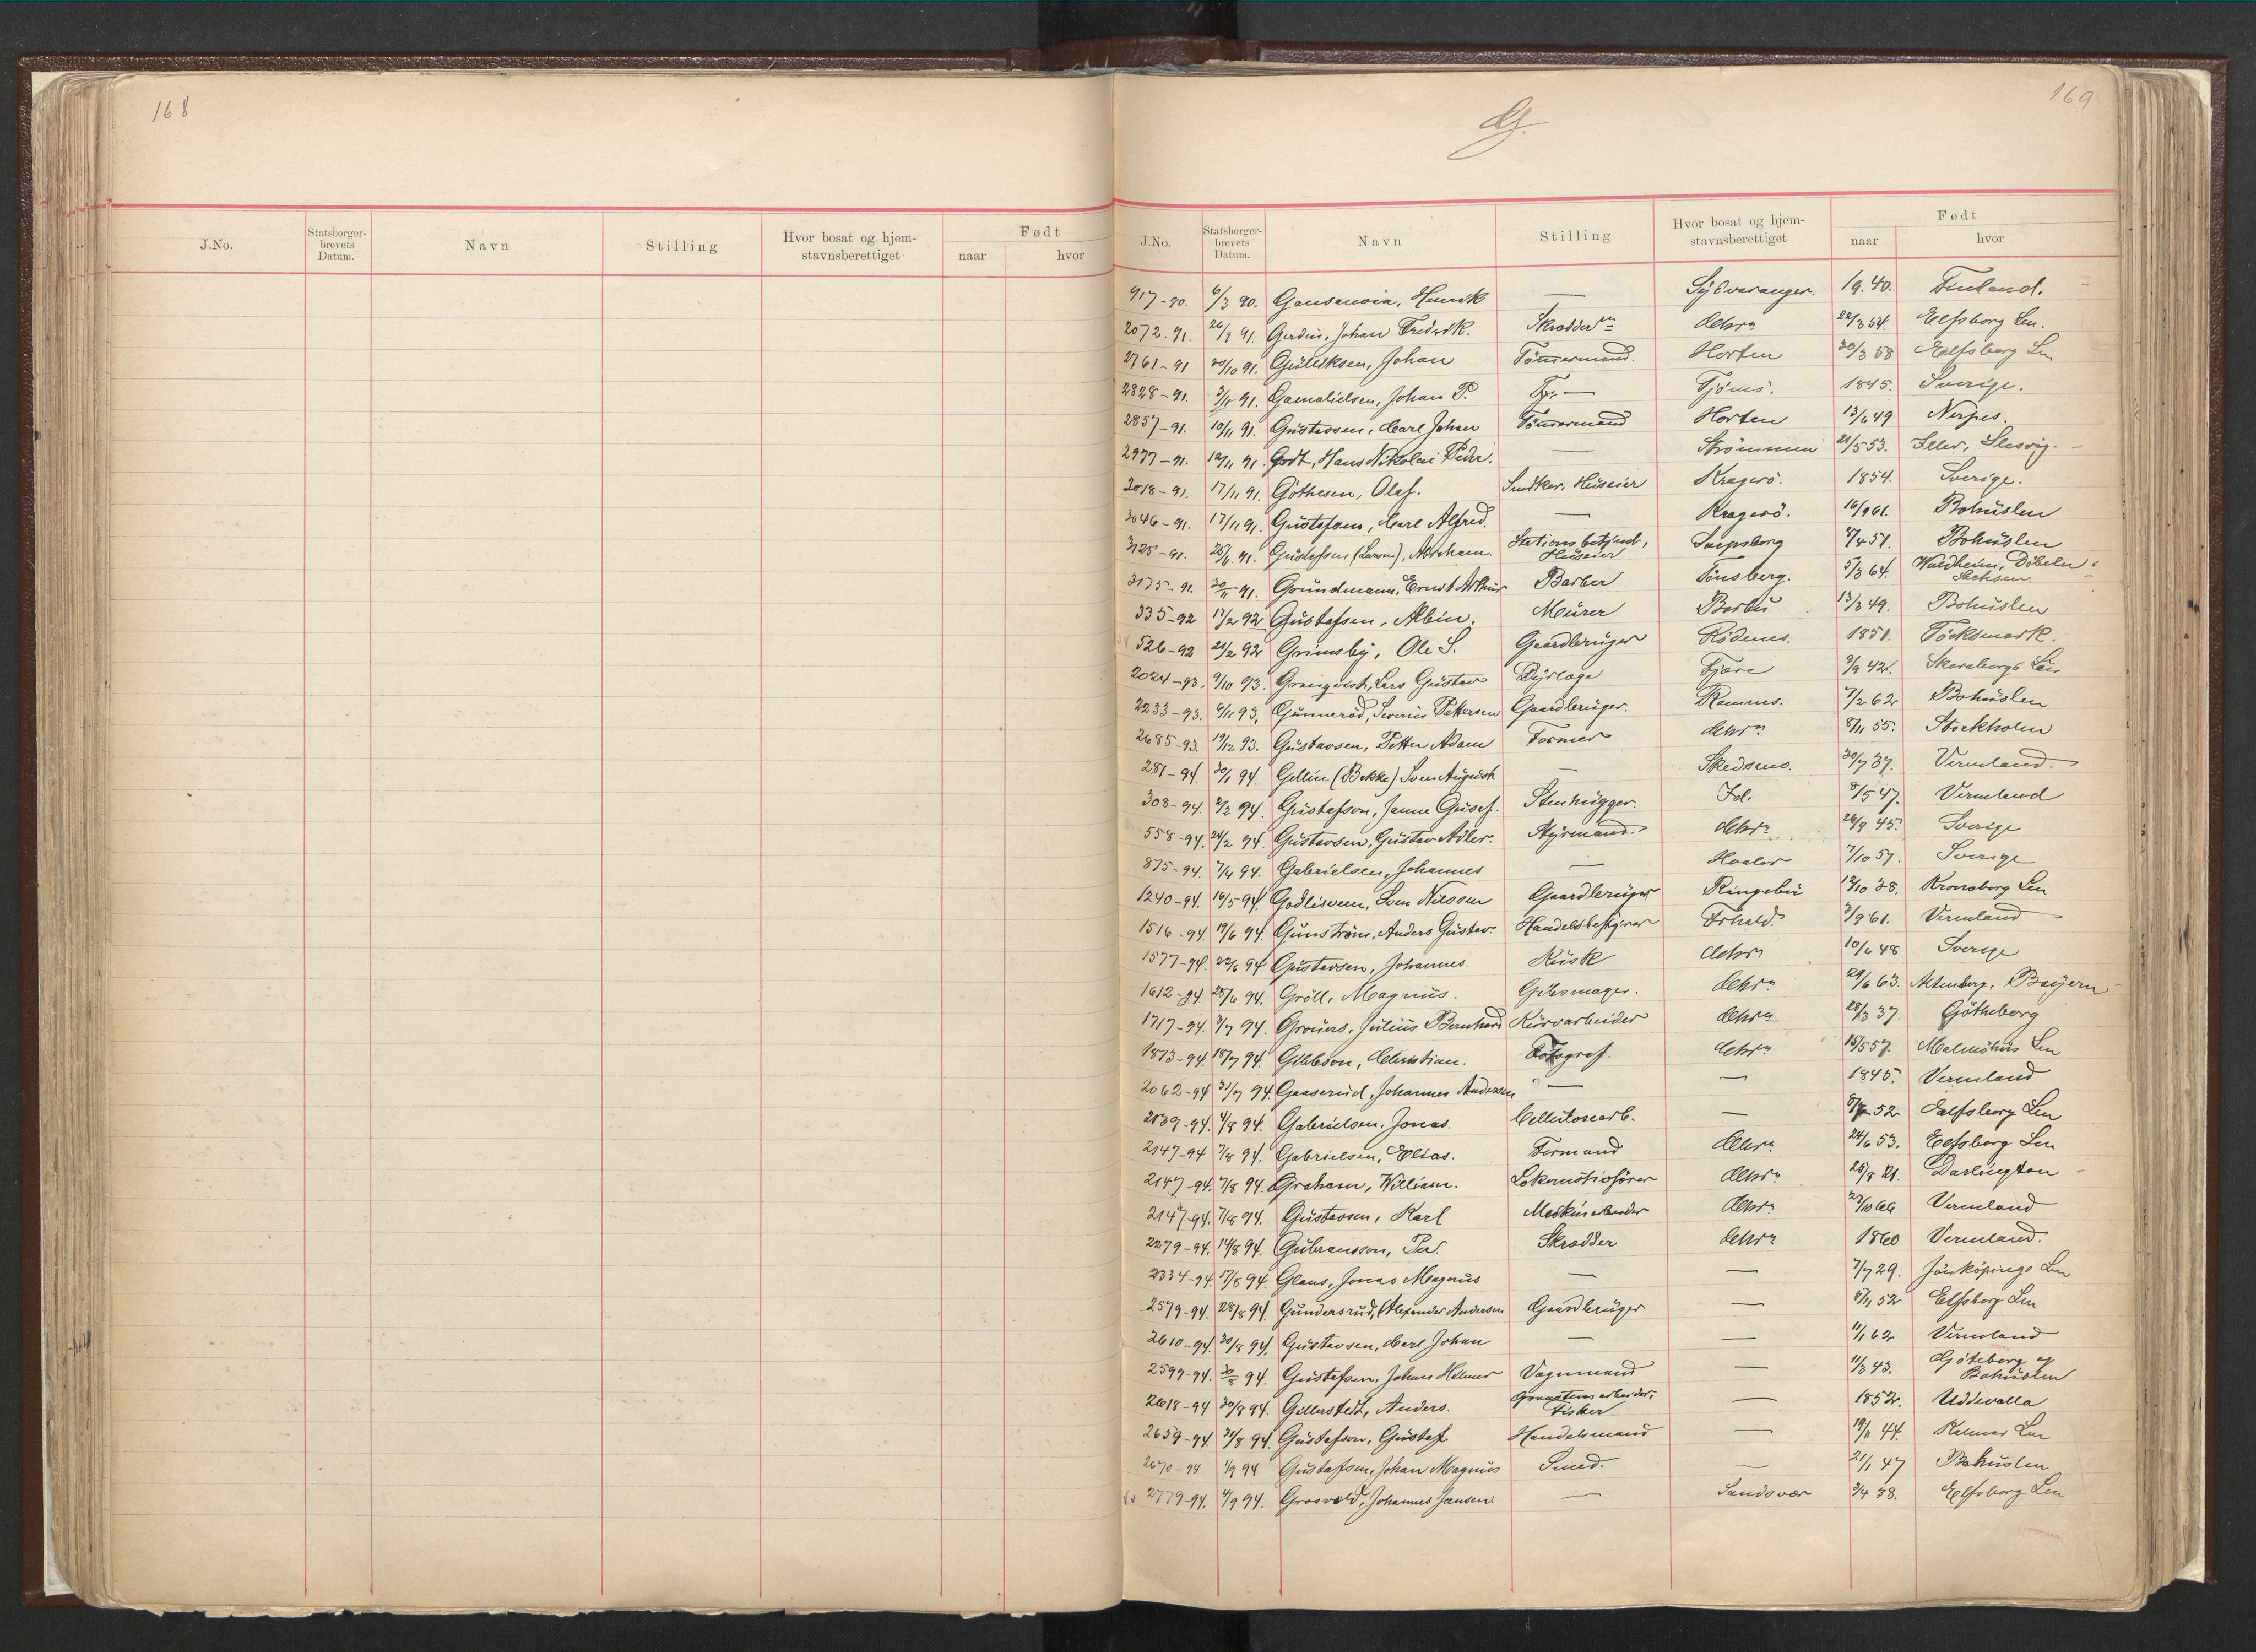 168
J.No.
Statsborger-
brevets
Datum.
Navn
Stilling
Hvor bosat og hjem-
stavnsberettiget
Født
naar
hvor
169
G.
J.No.
Statsborger-
brevets
Datum.
Navn
Stilling
Hvor bosat og hjem-
stavnsberettiget
Født
naar
hvor
917-90. 6/3 90. Henrik — Sydvaranger. 19.40. Finland.
2072.91. 26/9 91. Gerdin, Johan Fredrik. Skrædder Chra 22/3 54. Elfsborg Len.
2761-91 30/10 91. Johan Tömmermand. Horten 30/3 58 Elfsborg Len
2828-91. 3/11 91. Gamalielsen, Johan P. Tjömö. 1845. Sverige.
2857-91. 10/11 91. Gustavsen, Carl Johan Tömmermand Horten 13/6 49 Nerpes.
2977-91. 12/11 91. Godt, Hans Nikolai Peder. — Strömmen 21/5 53. Slesvig.
3018-91. 17/11 91. Göthesen, Olaf. Snedker, Huseier Kragerö. 1854. Sverige.
3046-91. 17/11 91. Gustafsen, Carl Alfred. — Kragerö. 16/9 61. Bohuslen
3125-91. 28/11 91. Gustafsen (Larsen), Abraham. Stationsbetjent, Huseier Sarpsborg 4/4 51. Bohuslen
3175-91. 30/11 91. Grundmann, Ernst Arthur Barber Tönsberg. 5/3 64. Waldheim, Döbeln i Sachsen
335-92 17/2 92 Gustafsen, Albin. Murer Barbu 13/3 49. Bohuslen
526-92 24/2 92 Grimsby, Ole S. Gaardbruger Rödenes. 1851. Töcksmark.
2024-93. 9/10 93. Lars Gustav Dyrlæge Fjære 9/9 42. Skaraborgs Len
2233-93. 6/11 93, Gunneröd, Severin Pettersen Gaardbruger. Ramnes. 7/2 62 Bohuslen
2685-93. 19/12 93. Gustavsen, Petter Adam Former Chra 8/11 55. Stockholm
281-94. 30/1 94. Gellin (Bekke) Sven August — Skedsmo. 30/7 37. Vermland.
308-94. 2/2 94. Gustafson, Janne Gustaf. Stenhugger. Id. 8/5 47. Vermland
558-94. 24/2 94. Gustavsen, Gustav Adler. Styrmand. Chra 26/9 45. Sverige
875-94. 7/4 94. Gabrielsen, Johannes — Hvaler 7/10 57. Sverige
1240-94. 16/5 94. Sven Nilssen Gaardbruger Ringebu 12/10 38. Kronoberg Len
1516-94. 19/6 94. Gunström, Anders Gustav Handelsbestyrer Frhald. 3/9 61. Vermland
1577-94. 22/6 94 Gustavsen, Johannes. Kusk Chra 10/6 48 Sverige
1612-94 28/6 94. Gröll, Magnus. Gibsmager. Chra 29/6 63. Altenberg, Bayern
1717-94. 3/7 94. Grouers, Julius Bernhard Kurvarbeider Chra 28/3 37. Götheborg
1873-94 18/7 94 Gibbson, Christian. Fotograf. Chra 15/5 57. Malmöhus Len
2062-94 31/7 94. Gaaserud, Johannes Andersen — — 1845. Vermland
2139-94. 4/8 94. Gabrielsen, Jonas. Cellulosearb. — 52 Elfsborg Len
2147-94 7/8 94. Gabrielsen, Elias. Formand Chra 24/6 53. Elfsborg Len
2147-94. 7/8 94. Graham, William. Lokomotivfører Chra 25/8 21. Darlington
2147-94. 7/8 94. Gustavsen, Karl Maskinarbeider Chra 27/10 66 Vermland
2279-94. 14/8 94. Gulbransson, Per. Skrædder Chra 1860 Vermland.
2334-94. 17/8 94. Glans, Jonas Magnus — — 7/7 29. Jönköpings Len
2579-94. 28/8 94. Gundersrud, Alexander Andersen Gaardbruger — 6/11 52 Elfsborg Len
2610-94. 30/8 94. Gustavsen, Carl Johan — — 11/1 62 Vermland
2599-94. 30/8 94. Gustafsen, Johan Helmer Vognmand — 11/3 43. Göteborg og Bohuslen
2618-94 30/8 94. Gillerstedt, Anders. Graastensarbeider, Fisker — 1852. Uddevalla
2659-94. 31/8 94. Gustafson, Gustaf Handelsmand — 19/11 44. Kalmar Len
2670-94 1/9 94 Gustafsen, Johan Magnus Smed. — 21/1 47 Bohuslen
2779-94. 4/9 94. Grosvold, Johannes Jansen. — Sandsvær 3/4 38. Elfsborg Len